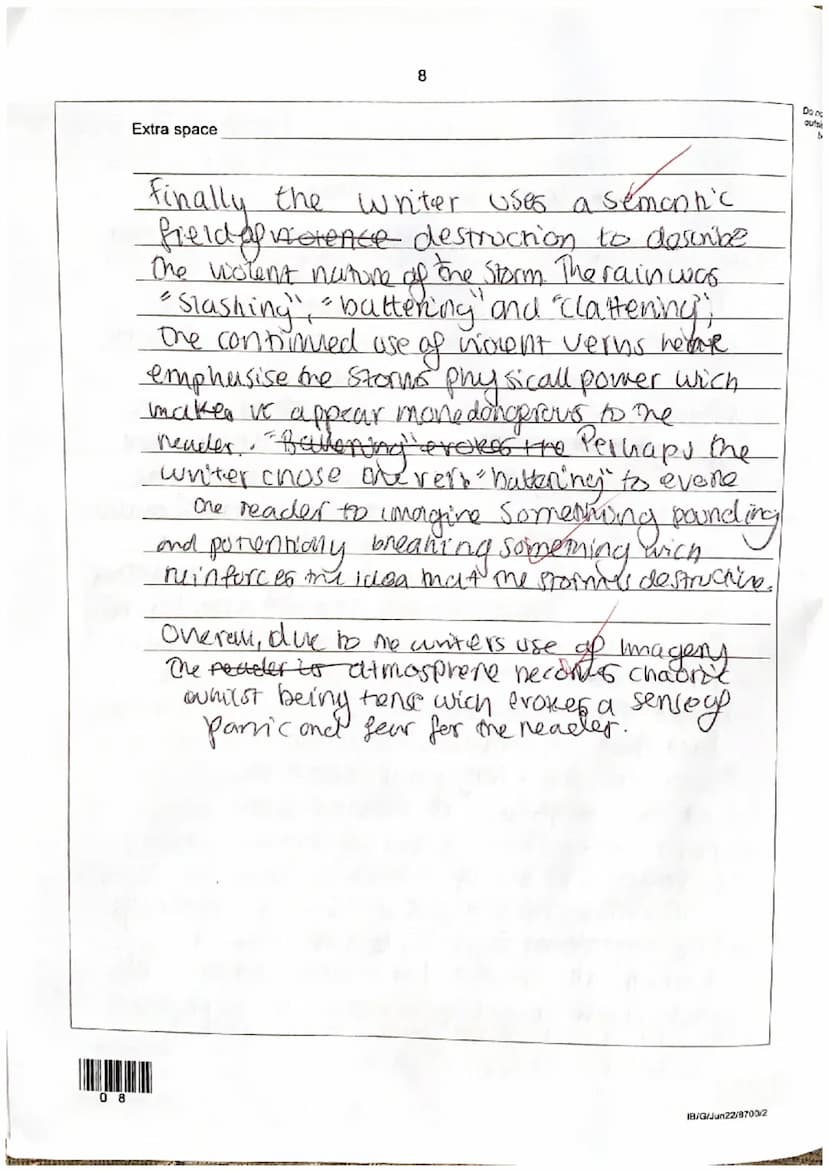 8
Do no
outsi
b
Extra space
Finally the writer uses a semantic
field of violence destruction to describe
the violent nature of the storm. The rain was
"slashing", "battering" and "clattering",
the continued use of violent verbs
emphasise the storms physicall power wich
makes it appear more dangerous to the
reader. "Battening" evokes the Perhaps the
writer chose the verb "battering" to
the reader to imagine something pounding
and potentially breaking something wich
reinforces the idea that the storm is destructive.
Overall, due to the writers use of imagery
the reader is atmosphere becomes chaotic
whilst being tense wich evokes a sense of
panic and fear for the reader.
0 8
IB/G/Jun22/8700/2